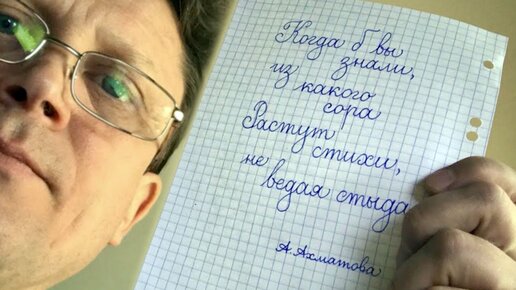 Когда б вы
знали,
из какого
сора
Растут
стихи,
не
ведая стыда
А. Ахматова